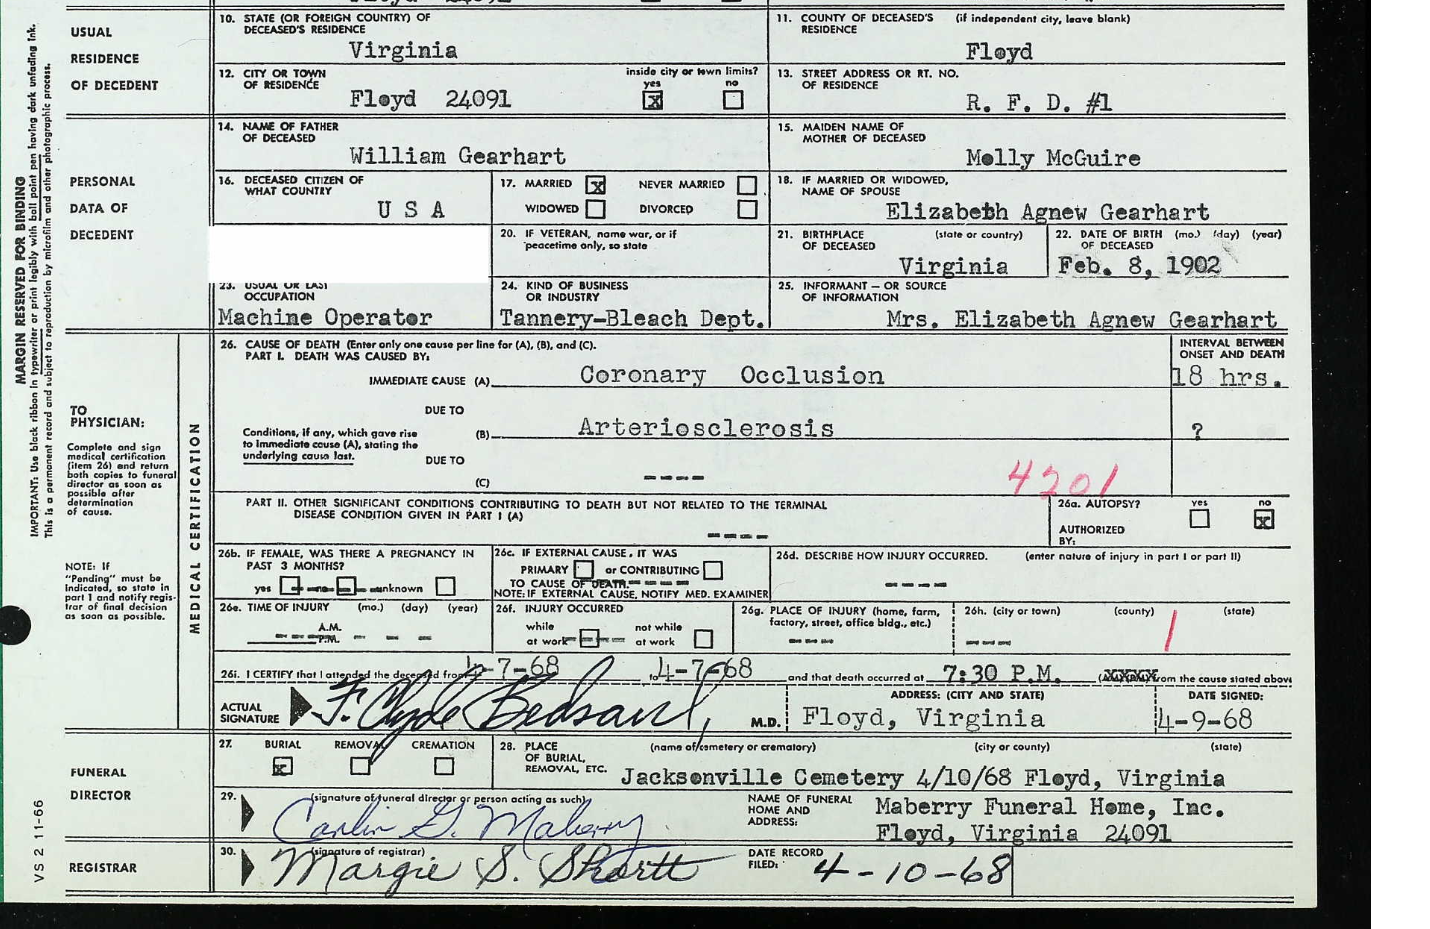 10. STATE (OR FOREIGN COUNTRY) OF DECEASED'S RESIDENCE
Virginia
11. COUNTY OF DECEASED'S RESIDENCE (if independent city, leave blank)
Floyd
USUAL RESIDENCE OF DECEDENT
12. CITY OR TOWN OF RESIDENCE
Floyd 24091
inside city or town limits?
yes x no
13. STREET ADDRESS OR RT. NO. OF RESIDENCE
R. F. D. #1
14. NAME OF FATHER OF DECEASED
William Gearhart
15. MAIDEN NAME OF MOTHER OF DECEASED
Molly McGuire
PERSONAL DATA OF DECEDENT
16. DECEASED CITIZEN OF WHAT COUNTRY
U S A
17. MARRIED x NEVER MARRIED
WIDOWED DIVORCED
18. IF MARRIED OR WIDOWED, NAME OF SPOUSE
Elizabeth Agnew Gearhart
20. IF VETERAN, name war, or if peacetime only, so state
21. BIRTHPLACE OF DECEASED (state or country)
Virginia
22. DATE OF BIRTH OF DECEASED (mo.) (day) (year)
Feb. 8, 1902
23. USUAL OR LAST OCCUPATION
Machine Operator
24. KIND OF BUSINESS OR INDUSTRY
Tannery-Bleach Dept.
25. INFORMANT — OR SOURCE OF INFORMATION
Mrs. Elizabeth Agnew Gearhart
MARGIN RESERVED FOR BINDING
IMPORTANT: Use black ribbon in typewriter or print legibly with ball point pen having dark unfading ink.
This is a permanent record and subject to reproduction by microfilm and other photographic process.
26. CAUSE OF DEATH (Enter only one cause per line for (A), (B), and (C).
PART I. DEATH WAS CAUSED BY:
INTERVAL BETWEEN ONSET AND DEATH
IMMEDIATE CAUSE (A) Coronary Occlusion 18 hrs.
DUE TO
Conditions, if any, which gave rise to immediate cause (A), stating the underlying cause last.
(B) Arteriosclerosis ?
DUE TO
(C) ----
4201
TO PHYSICIAN:
Complete and sign medical certification (item 26) and return both copies to funeral director as soon as possible after determination of cause.
MEDICAL CERTIFICATION
PART II. OTHER SIGNIFICANT CONDITIONS CONTRIBUTING TO DEATH BUT NOT RELATED TO THE TERMINAL DISEASE CONDITION GIVEN IN PART I (A)
----
26a. AUTOPSY? yes no x
AUTHORIZED BY:
NOTE: IF "Pending" must be indicated, so state in part 1 and notify registrar of final decision as soon as possible.
26b. IF FEMALE, WAS THERE A PREGNANCY IN PAST 3 MONTHS?
yes unknown
26c. IF EXTERNAL CAUSE, IT WAS
PRIMARY or CONTRIBUTING
TO CAUSE OF DEATH.
NOTE: IF EXTERNAL CAUSE, NOTIFY MED. EXAMINER
26d. DESCRIBE HOW INJURY OCCURRED. (enter nature of injury in part I or part II)
----
26e. TIME OF INJURY (mo.) (day) (year)
A.M.
P.M.
26f. INJURY OCCURRED
while at work not while at work
26g. PLACE OF INJURY (home, farm, factory, street, office bldg., etc.)
---
26h. (city or town) (county) (state)
---
1
26i. I CERTIFY that I attended the deceased from 4-7-68 to 4-7-68 and that death occurred at 7:30 P.M. from the cause stated above
ACTUAL SIGNATURE F. Clyde Bedsaul, M.D.
ADDRESS: (CITY AND STATE)
Floyd, Virginia
DATE SIGNED:
4-9-68
FUNERAL DIRECTOR
27. BURIAL x REMOVAL CREMATION
28. PLACE OF BURIAL, REMOVAL, ETC. (name of cemetery or crematory) (city or county) (state)
Jacksonville Cemetery 4/10/68 Floyd, Virginia
29. (signature of funeral director or person acting as such)
Carlin G. Maberry
NAME OF FUNERAL HOME AND ADDRESS:
Maberry Funeral Home, Inc.
Floyd, Virginia 24091
REGISTRAR
30. (signature of registrar)
Margie S. Shortt
DATE RECORD FILED: 4-10-68
VS 2 11-66